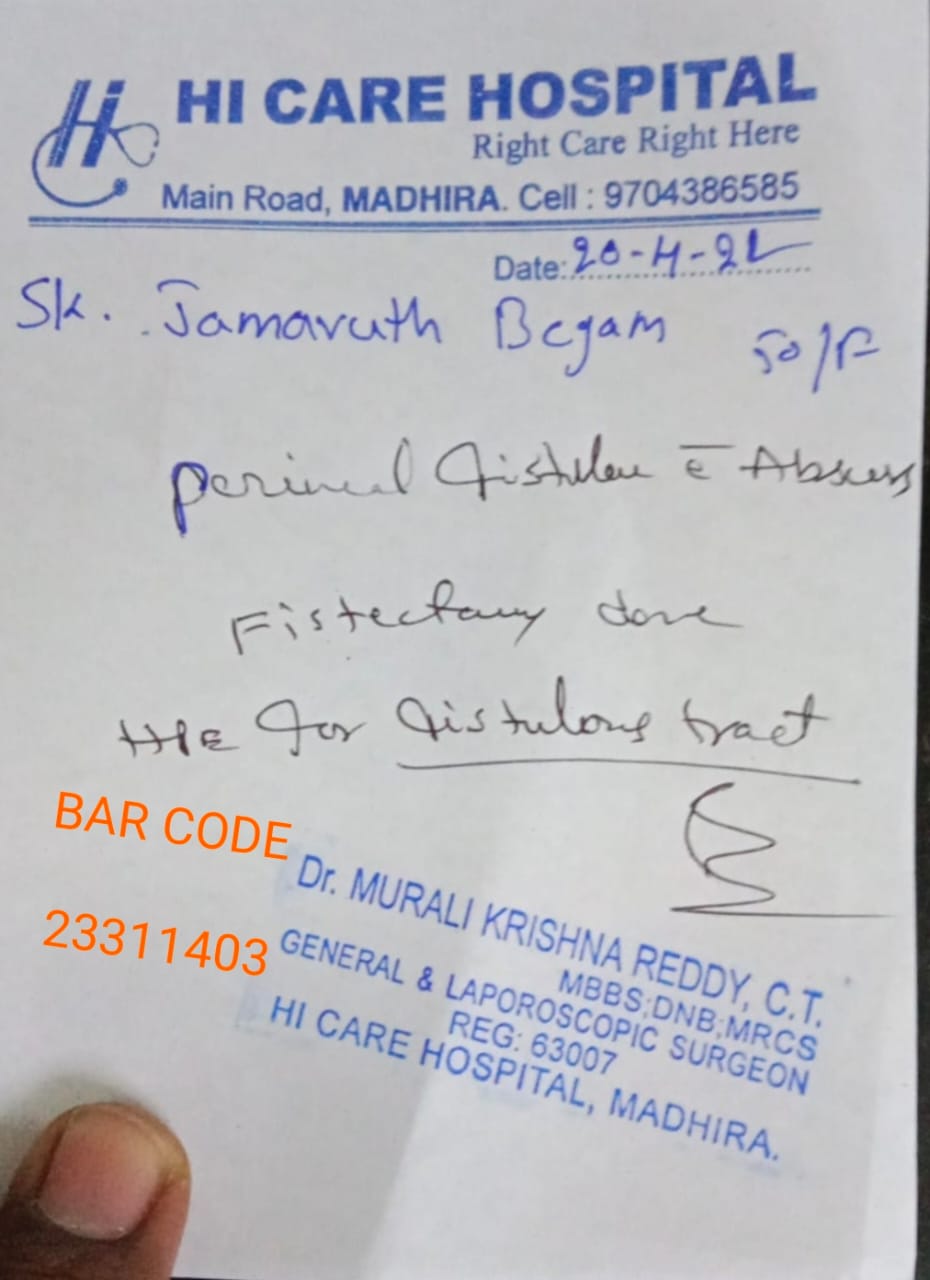 Hi HI CARE HOSPITAL
Right Care Right Here
Main Road, MADHIRA. Cell : 9704386585
Date: 20-4-22
Sk. Jamaruth Begam 50/F
Perineal fistulae c̄ Abscess
Fistectomy done
HPE for fistulous tract
BAR CODE
23311403
Dr. MURALI KRISHNA REDDY, C.T.
MBBS;DNB;MRCS
GENERAL & LAPOROSCOPIC SURGEON
REG: 63007
HI CARE HOSPITAL, MADHIRA.